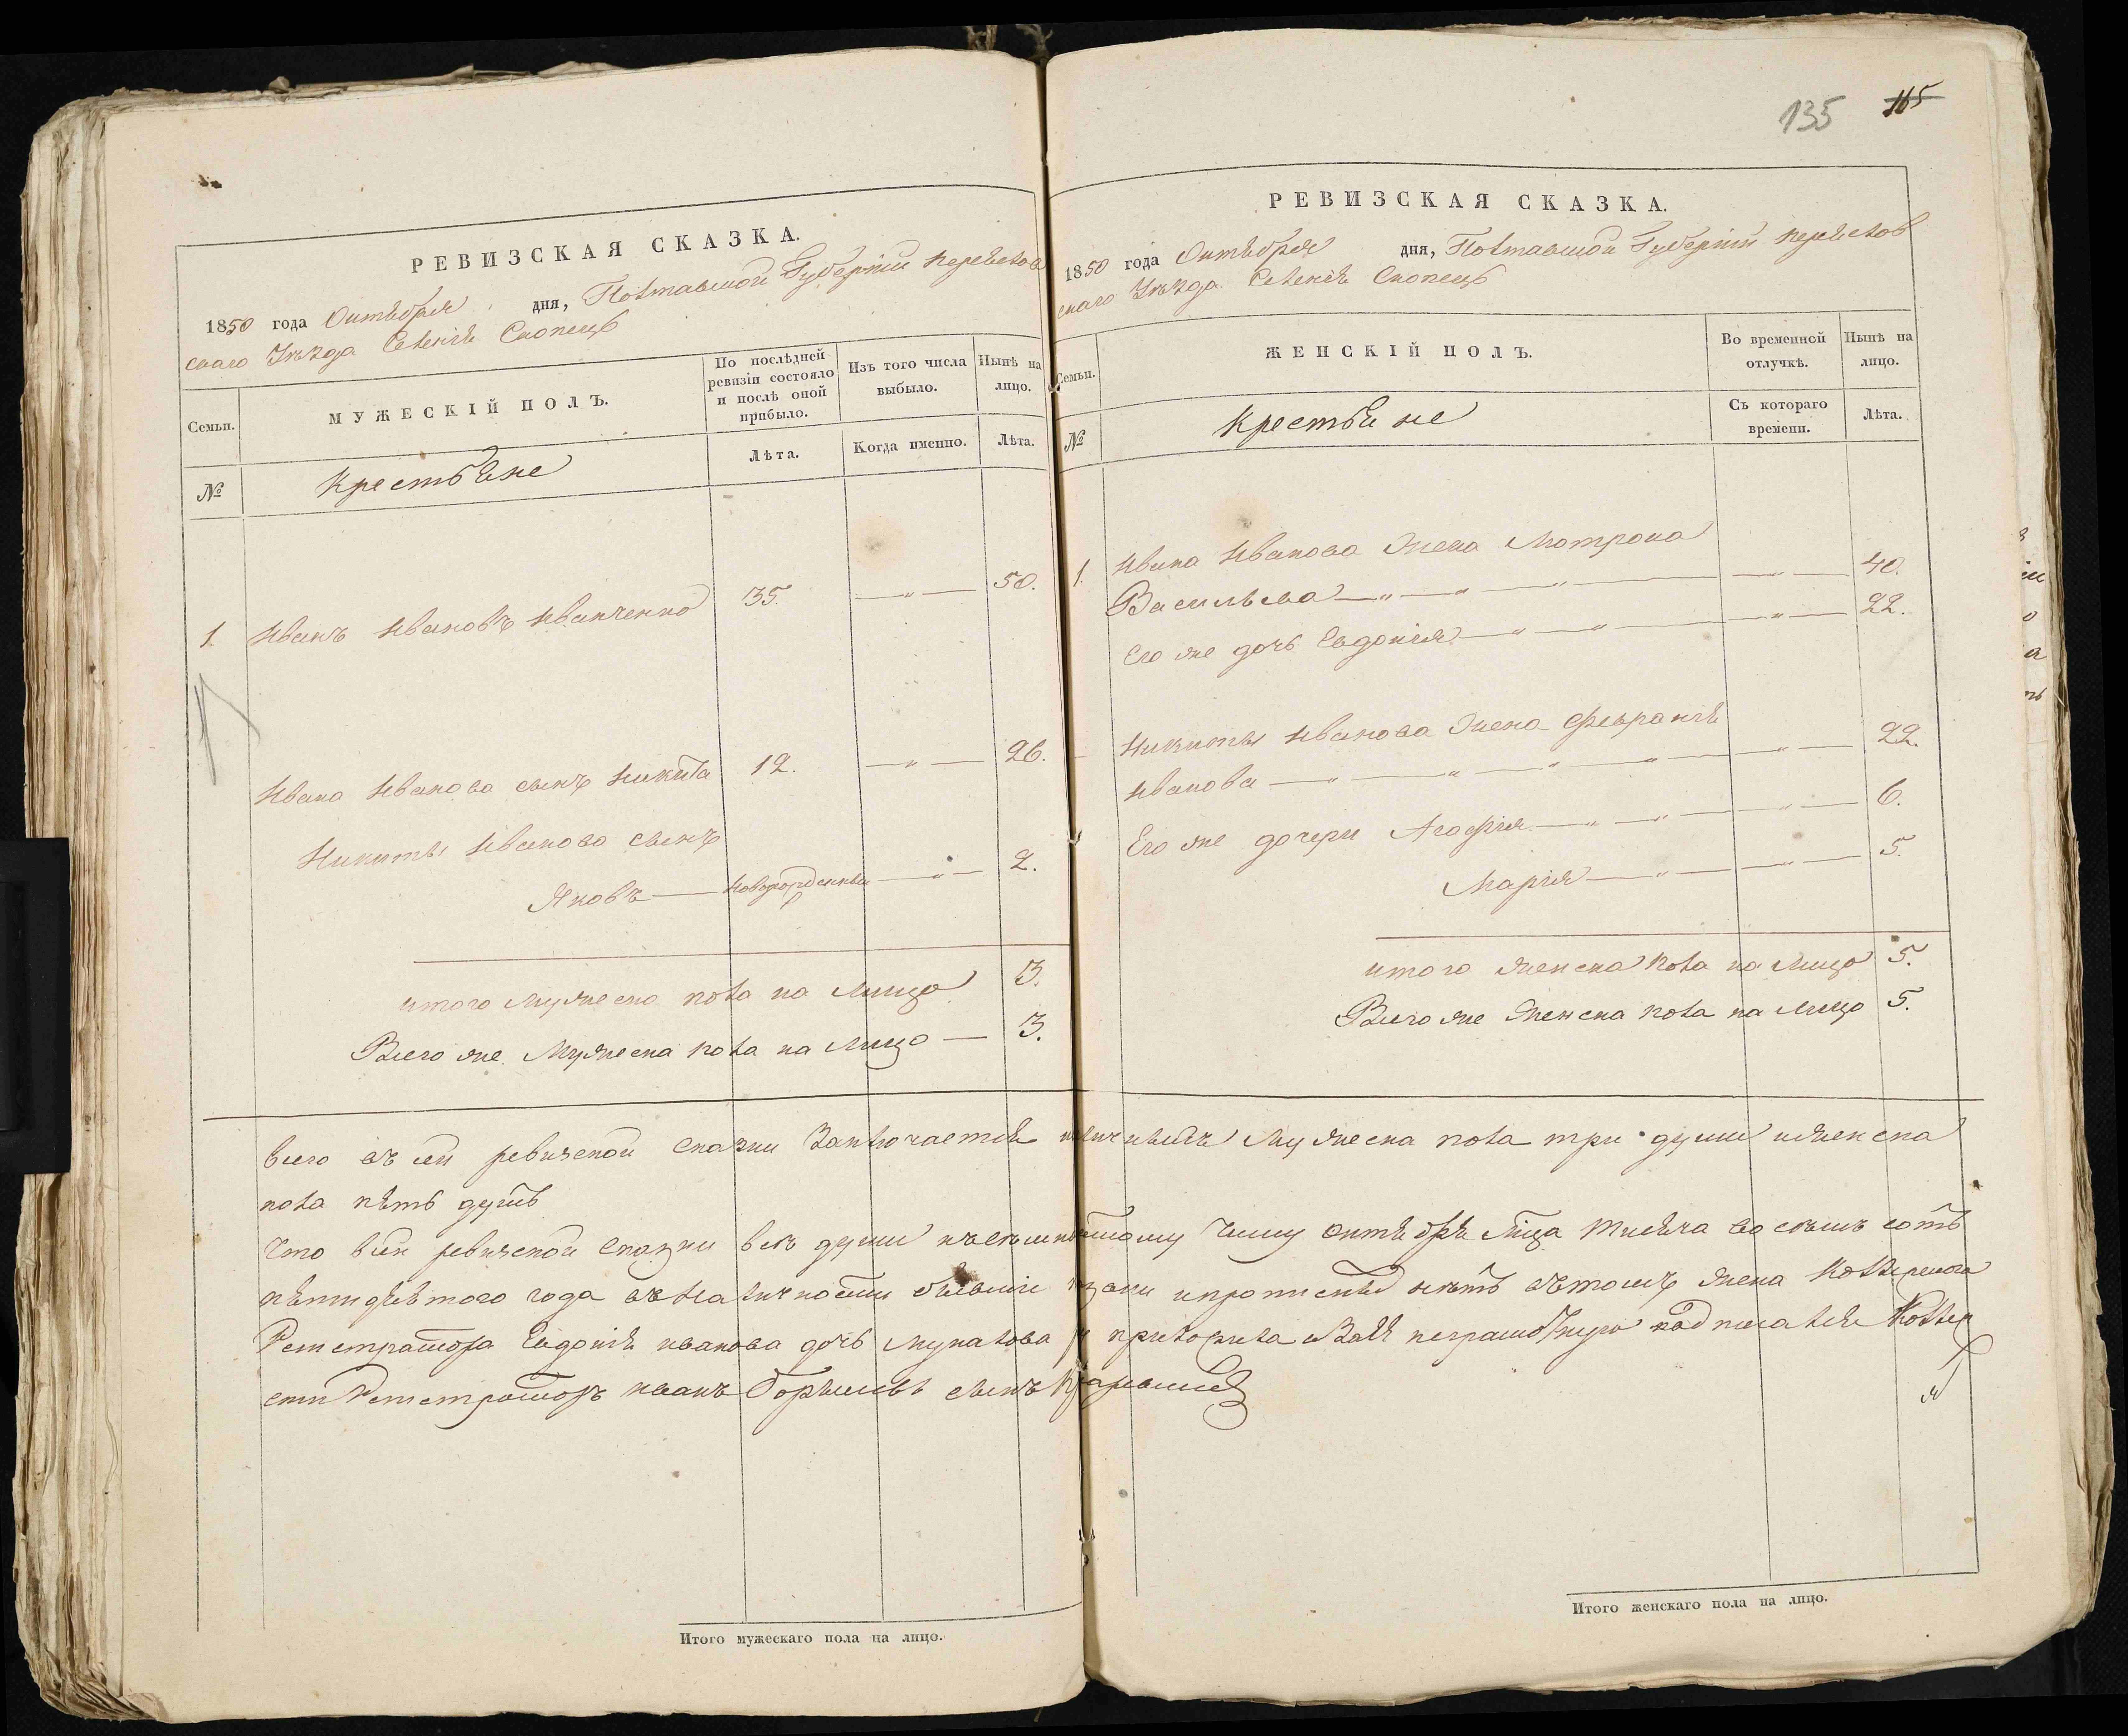 135 165
РЕВИЗСКАЯ СКАЗКА.
1850 года Октября дня, Полтавской Губерніи Переяслов
скаго Уѣзда Селенія Скопецъ
Семьи.
МУЖЕСКІЙ ПОЛЪ.
По послѣдней ревизіи состояло и послѣ оной прибыло.
Изъ того числа выбыло.
Нынѣ на лицо.
№
Крестьяне
Лѣта.
Когда именно.
Лѣта.
1. Иванъ Ивановъ Иванченко 35. —„— 50.
Ивана Иванова сынъ Никита 12. —„— 26.
Никиты Иванова сынъ
Яковъ — новорожденный —„— 2.
итого мужеска пола на лицо 3.
Всего же мужеска пола на лицо — 3.
РЕВИЗСКАЯ СКАЗКА.
1850 года Октября дня, Полтавской Губерніи Переяслов
скаго Уѣзда Селенія Скопецъ
Семьи.
ЖЕНСКІЙ ПОЛЪ.
Во временной отлучкѣ.
Нынѣ на лицо.
№
Крестьяне
Съ котораго времени.
Лѣта.
1. Ивана Иванова жена Мотрона
Васильева —„—„—„— —„— 40.
Его же дочь Евдокія —„—„— —„— 22.
Никиты Иванова жена Февранія
Иванова —„—„—„—„— —„— 22.
Его же дочери Агафія —„—„— —„— 6.
Марія —„— —„— 5.
итого женска пола на лицо 5.
Всего же женска пола на лицо 5.
всего въ сей ревизской сказки заключается мужеска пола три души и женска
пола пять душъ
Что в сей ревизской сказки всѣ души къ октября мца тысяча восемъ сотъ
года въ наличности и прописныхъ нѣтъ въ томъ жена
Регистратора Евдокія иванова дочь неграмотную подписался Коллеж
скій Регистраторъ иванъ сынъ
Итого мужескаго пола на лицо.
Итого женскаго пола на лицо.